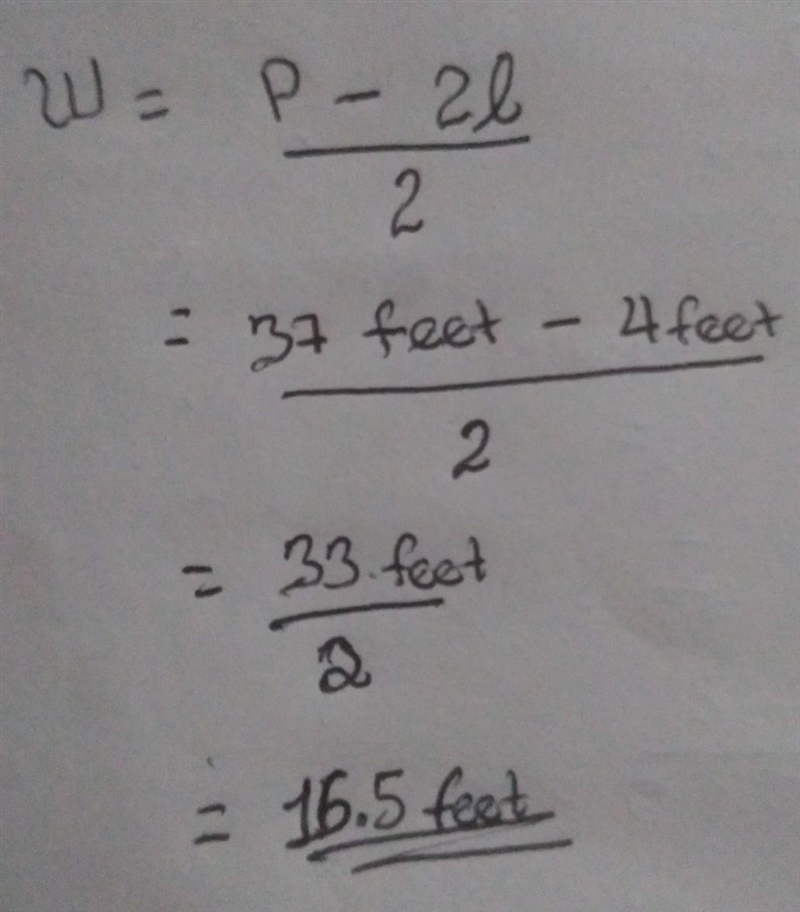 W = P - 2l
2
= 37 feet - 4 feet
2
= 33 feet
2
= 16.5 feet